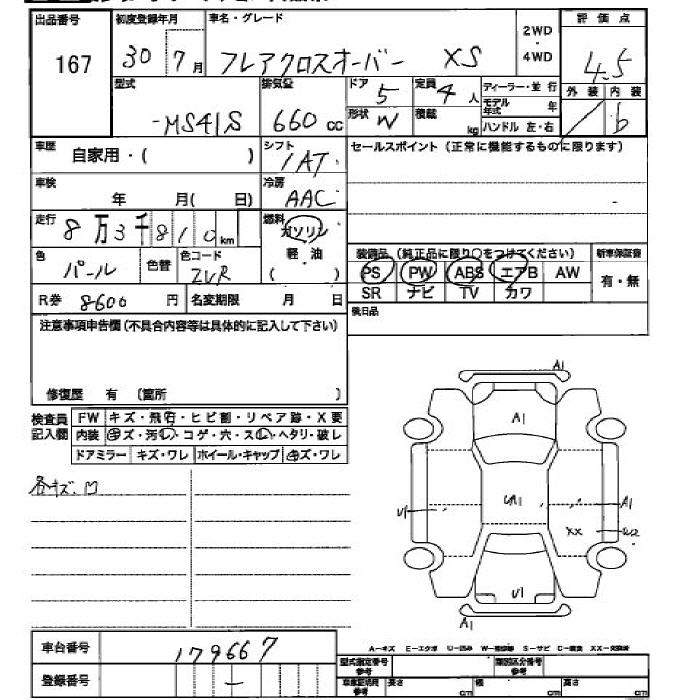 出品番号 初度登録年月 車名・グレード 2WD・4WD 評価点
167 30 7月 フレアクロスオーバー XS 4.5
型式 排気量 ドア 5 定員 4人 ディーラー・並行 外装 内装
-MS41S 660cc 形状 W 積載 kg モデル年式 年 b
ハンドル 左・右
車歴 自家用・( ) シフト IAT セールスポイント(正常に機能するものに限ります)
車検 年 月( 日) 冷房 AAC
走行 8万3千810km 燃料 ガソリン
色 パール 色替 色コード ZVR 軽・油 ( )
装備品(純正品に限り○をつけてください) 新車保証書
PS PW ABS エアB AW 有・無
SR ナビ TV カワ
R券 8600円 名変期限 月 日 後日品
注意事項申告欄(不具合内容等は具体的に記入して下さい)
修復歴 有 〔箇所 〕
検査員記入欄 FW キズ・飛石・ヒビ割・リペア跡・X要
内装 キズ・汚レ・コゲ・穴・スレ・ヘタリ・破レ
ドアミラー キズ・ワレ ホイール・キャップ キズ・ワレ
各キズ.凹
A1
A1
U1 A1
XX W2
U1
A1
車台番号 179667
登録番号 -
A-キズ E-エクボ U-凹み W-補修跡 S-サビ C-腐食 XX-交換済
型式指定番号 参考 類別区分番号 参考
車庫証明用 参考 長さ cm 幅 cm 高さ cm